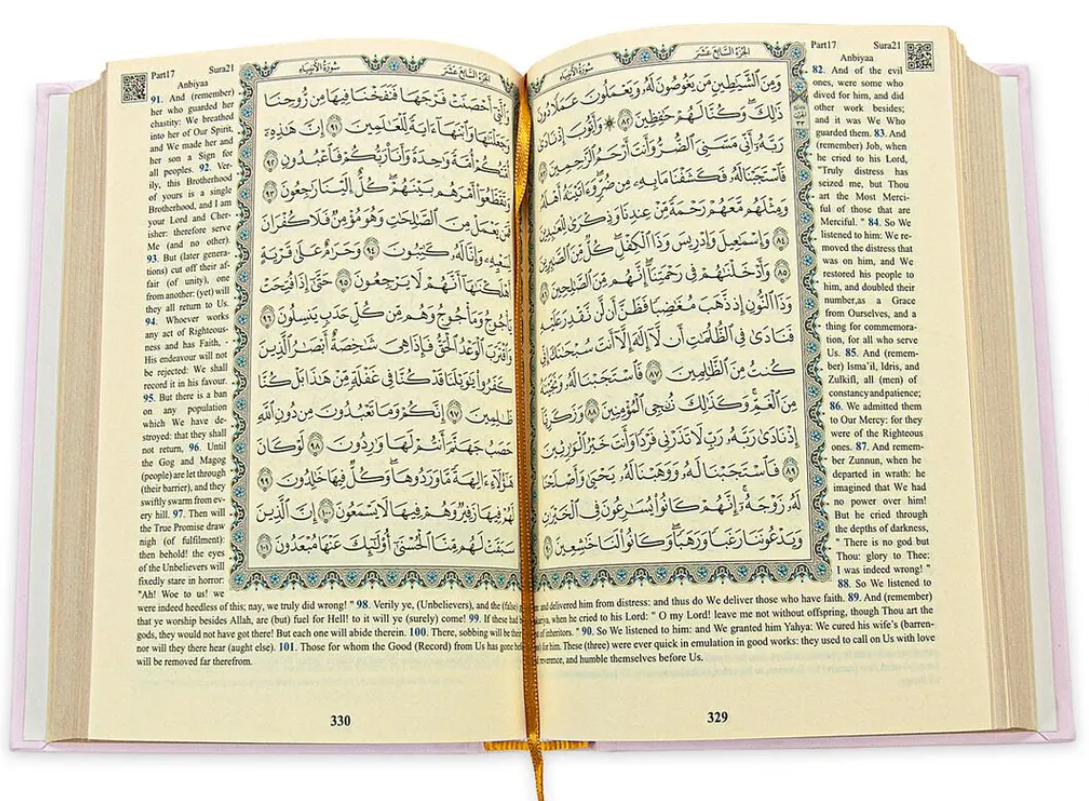 الجزء السابع عشر
سورة الأنبياء
وَمِنَ الشَّيَاطِينِ مَن يَغُوصُونَ لَهُ وَيَعْمَلُونَ عَمَلًا دُونَ
ذَٰلِكَ وَكُنَّا لَهُمْ حَافِظِينَ ﴿٨٢﴾ وَأَيُّوبَ إِذْ نَادَىٰ
رَبَّهُ أَنِّي مَسَّنِيَ الضُّرُّ وَأَنتَ أَرْحَمُ الرَّاحِمِينَ ﴿٨٣﴾
فَاسْتَجَبْنَا لَهُ فَكَشَفْنَا مَا بِهِ مِن ضُرٍّ وَآتَيْنَاهُ أَهْلَهُ
وَمِثْلَهُم مَّعَهُمْ رَحْمَةً مِّنْ عِندِنَا وَذِكْرَىٰ لِلْعَابِدِينَ
﴿٨٤﴾ وَإِسْمَاعِيلَ وَإِدْرِيسَ وَذَا الْكِفْلِ كُلٌّ مِّنَ الصَّابِرِينَ
﴿٨٥﴾ وَأَدْخَلْنَاهُمْ فِي رَحْمَتِنَا إِنَّهُم مِّنَ الصَّالِحِينَ ﴿٨٦﴾
وَذَا النُّونِ إِذ ذَّهَبَ مُغَاضِبًا فَظَنَّ أَن لَّن نَّقْدِرَ عَلَيْهِ
فَنَادَىٰ فِي الظُّلُمَاتِ أَن لَّا إِلَٰهَ إِلَّا أَنتَ سُبْحَانَكَ إِنِّي
كُنتُ مِنَ الظَّالِمِينَ ﴿٨٧﴾ فَاسْتَجَبْنَا لَهُ وَنَجَّيْنَاهُ
مِنَ الْغَمِّ وَكَذَٰلِكَ نُنجِي الْمُؤْمِنِينَ ﴿٨٨﴾ وَزَكَرِيَّا
إِذْ نَادَىٰ رَبَّهُ رَبِّ لَا تَذَرْنِي فَرْدًا وَأَنتَ خَيْرُ الْوَارِثِينَ
﴿٨٩﴾ فَاسْتَجَبْنَا لَهُ وَوَهَبْنَا لَهُ يَحْيَىٰ وَأَصْلَحْنَا
لَهُ زَوْجَهُ إِنَّهُمْ كَانُوا يُسَارِعُونَ فِي الْخَيْرَاتِ
وَيَدْعُونَنَا رَغَبًا وَرَهَبًا وَكَانُوا لَنَا خَاشِعِينَ ﴿٩٠﴾
Part17 Sura21
Anbiyaa
82. And of the evil
ones, were some who
dived for him, and did
other work besides;
and it was We Who
guarded them. 83. And
(remember) Job, when
he cried to his Lord,
"Truly distress has
seized me, but Thou
art the Most Merci-
ful of those that are
Merciful. " 84. So We
listened to him: We re-
moved the distress that
was on him, and We
restored his people to
him, and doubled their
number,as a Grace
from Ourselves, and a
thing for commemora-
tion, for all who serve
Us. 85. And (remem-
ber) Isma'il, Idris, and
Zulkifl, all (men) of
constancy and patience;
86. We admitted them
to Our Mercy: for they
were of the Righteous
ones. 87. And remem-
ber Zunnun, when he
departed in wrath: he
imagined that We had
no power over him!
But he cried through
the depths of darkness,
" There is no god but
Thou: glory to Thee:
I was indeed wrong! "
88. So We listened to
and delivered him from distress: and thus do We deliver those who have faith. 89. And (remember)
when he cried to his Lord: " O my Lord! leave me not without offspring, though Thou art the
of inheritors. " 90. So We listened to him: and We granted him Yahya: We cured his wife's (barren-
for him. These (three) were ever quick in emulation in good works: they used to call on Us with love
reverence, and humble themselves before Us.
329
سورة الأنبياء
الجزء السابع عشر
وَالَّتِي أَحْصَنَتْ فَرْجَهَا فَنَفَخْنَا فِيهَا مِن رُّوحِنَا
وَجَعَلْنَاهَا وَابْنَهَا آيَةً لِّلْعَالَمِينَ ﴿٩١﴾ إِنَّ هَٰذِهِ
أُمَّتُكُمْ أُمَّةً وَاحِدَةً وَأَنَا رَبُّكُمْ فَاعْبُدُونِ ﴿٩٢﴾
وَتَقَطَّعُوا أَمْرَهُم بَيْنَهُمْ كُلٌّ إِلَيْنَا رَاجِعُونَ ﴿٩٣﴾
فَمَن يَعْمَلْ مِنَ الصَّالِحَاتِ وَهُوَ مُؤْمِنٌ فَلَا كُفْرَانَ
لِسَعْيِهِ وَإِنَّا لَهُ كَاتِبُونَ ﴿٩٤﴾ وَحَرَامٌ عَلَىٰ قَرْيَةٍ
أَهْلَكْنَاهَا أَنَّهُمْ لَا يَرْجِعُونَ ﴿٩٥﴾ حَتَّىٰ إِذَا فُتِحَتْ
يَأْجُوجُ وَمَأْجُوجُ وَهُم مِّن كُلِّ حَدَبٍ يَنسِلُونَ ﴿٩٦﴾
وَاقْتَرَبَ الْوَعْدُ الْحَقُّ فَإِذَا هِيَ شَاخِصَةٌ أَبْصَارُ الَّذِينَ
كَفَرُوا يَا وَيْلَنَا قَدْ كُنَّا فِي غَفْلَةٍ مِّنْ هَٰذَا بَلْ كُنَّا
ظَالِمِينَ ﴿٩٧﴾ إِنَّكُمْ وَمَا تَعْبُدُونَ مِن دُونِ اللَّهِ
حَصَبُ جَهَنَّمَ أَنتُمْ لَهَا وَارِدُونَ ﴿٩٨﴾ لَوْ كَانَ
هَٰؤُلَاءِ آلِهَةً مَّا وَرَدُوهَا وَكُلٌّ فِيهَا خَالِدُونَ ﴿٩٩﴾
لَهُمْ فِيهَا زَفِيرٌ وَهُمْ فِيهَا لَا يَسْمَعُونَ ﴿١٠٠﴾ إِنَّ الَّذِينَ
سَبَقَتْ لَهُم مِّنَّا الْحُسْنَىٰ أُولَٰئِكَ عَنْهَا مُبْعَدُونَ ﴿١٠١﴾
Part17 Sura21
Anbiyaa
91. And (remember)
her who guarded her
chastity: We breathed
into her of Our Spirit,
and We made her and
her son a Sign for
all peoples. 92. Ver-
ily, this Brotherhood
of yours is a single
Brotherhood, and I am
your Lord and Cher-
isher: therefore serve
Me (and no other).
93. But (later genera-
tions) cut off their af-
fair (of unity), one
from another: (yet) will
they all return to Us.
94. Whoever works
any act of Righteous-
ness and has Faith, -
His endeavour will not
be rejected: We shall
record it in his favour.
95. But there is a ban
on any population
which We have de-
stroyed: that they shall
not return, 96. Until
the Gog and Magog
(people) are let through
(their barrier), and they
swiftly swarm from ev-
ery hill. 97. Then will
the True Promise draw
nigh (of fulfilment):
then behold! the eyes
of the Unbelievers will
fixedly stare in horror:
"Ah! Woe to us! we
were indeed heedless of this; nay, we truly did wrong! " 98. Verily ye, (Unbelievers), and the (false)
that ye worship besides Allah, are (but) fuel for Hell! to it will ye (surely) come! 99. If these had
gods, they would not have got there! But each one will abide therein. 100. There, sobbing will be
nor will they there hear (aught else). 101. Those for whom the Good (Record) from Us has gone
will be removed far therefrom.
330